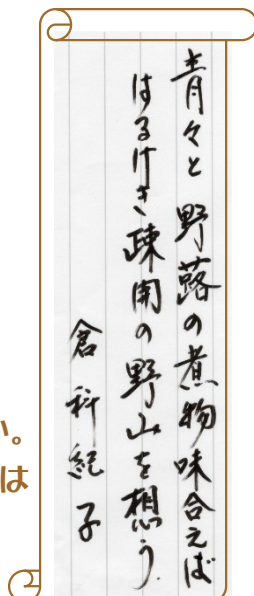 青々と野蕗の煮物味合えば
はるけき疎開の野山を想う
倉科紀子
い。
は